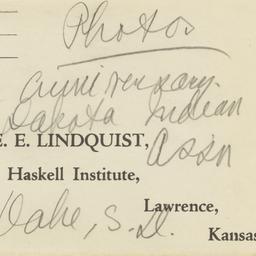 Photos
Anniversary.
Dakota Indian
Assn
E. E. LINDQUIST,
Haskell Institute,
Oahe, S. D.
Lawrence,
Kansas